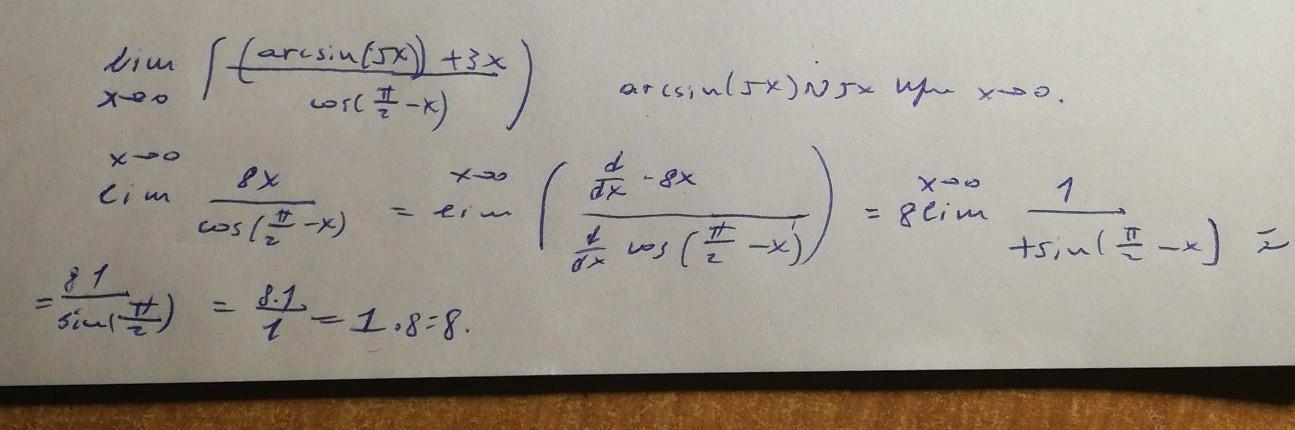 lim x→0 ( ((arcsin(5x)) + 3x) / cos(π/2 - x) ) arcsin(5x) ~ 5x при x→0.
lim x→0 8x / cos(π/2 - x) = lim x→0 ( d/dx - 8x / d/dx cos(π/2 - x) ) = 8 lim x→0 1 / +sin(π/2 - x) =
= 8 1 / sin(π/2) = 8·1 / 1 = 1·8=8.